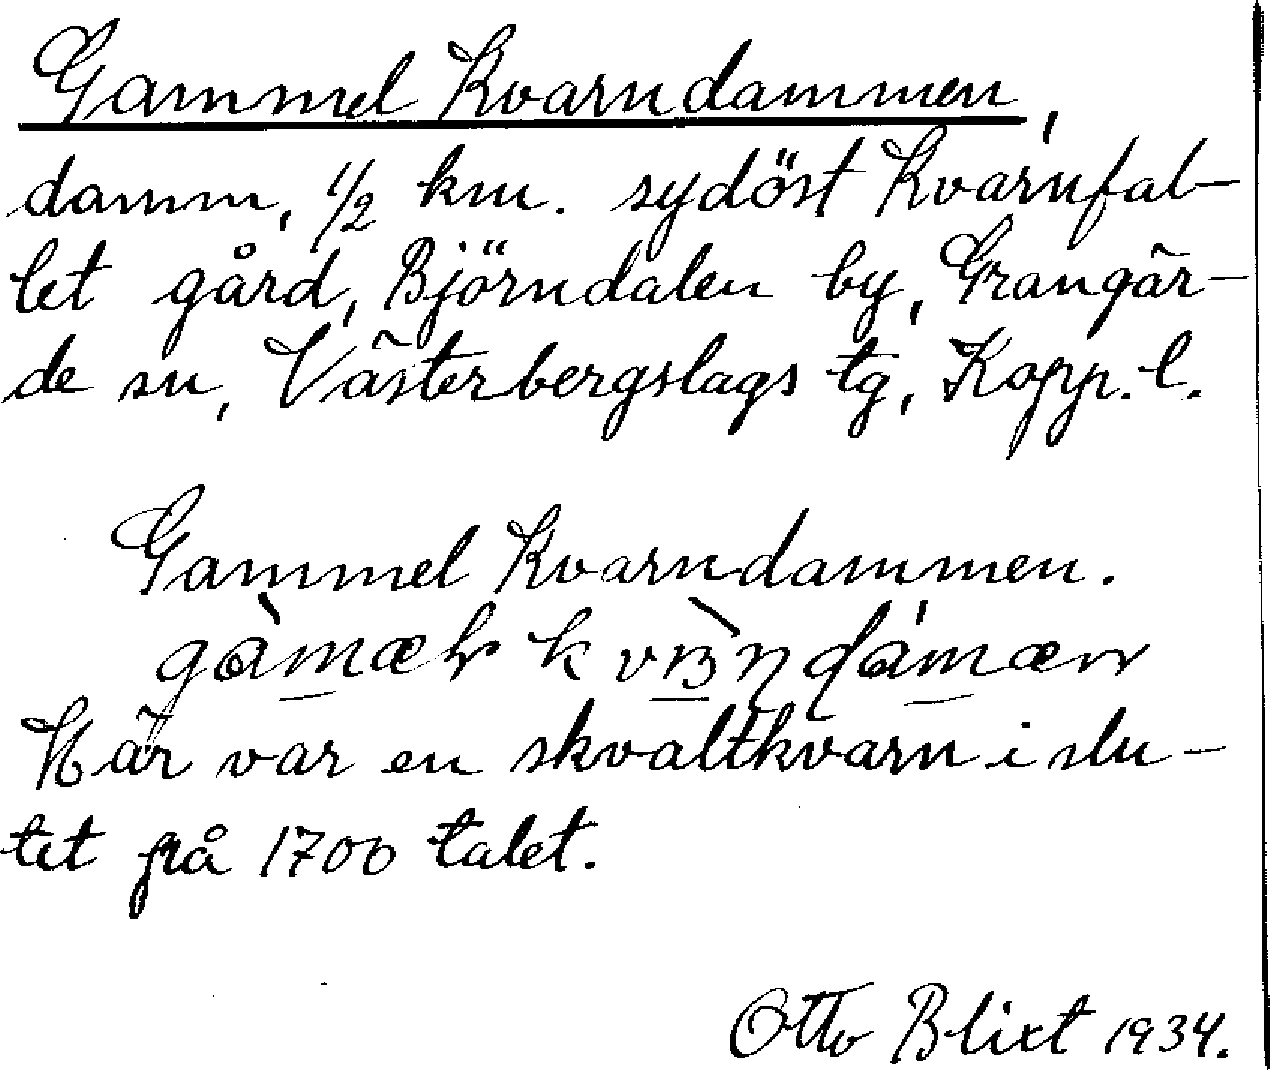 Gammel Kvarndammen,
damm, 1/2 km. sydöst Kvarnfal-
let gård, Björndalen by, Grangär-
de sn, Västerbergslags tg, Kopp. l.
Gammel Kvarndammen.
Här var en skvaltkvarn i slu-
tet på 1700 talet.
Otto Blixt 1934.